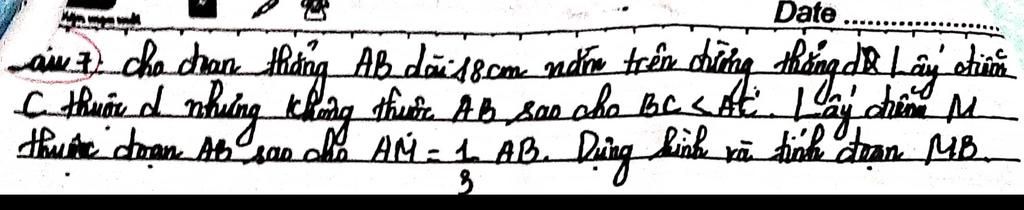 Date ..........................
Câu 7): Cho đoạn thẳng AB dài 18cm nằm trên đường thẳng d. Lấy điểm
C thuộc d nhưng không thuộc AB sao cho BC < AC. Lấy điểm M
thuộc đoạn AB sao cho AM = 1/3 AB. Dựng hình và tính đoạn MB.